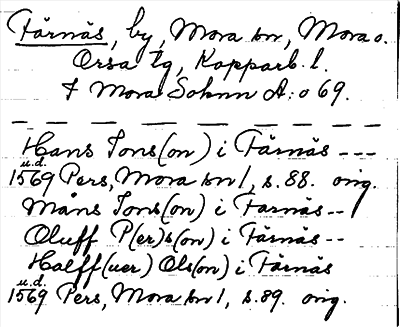 Färnäs, by, Mora sn, Mora o.
Orsa tg, Kopparb. l.
f Mora Soknn A: o 69.
Hans Jons(on) i Färnäs ---
u.d.
1569 Pers, Mora sn 1, s. 88. orig.
Måns Jons(on) i Färnäs --
Oluff P(er)s(on) i Färnäs --
Halff(uer) Ols(on) i Färnäs
u.d.
1569 Pers, Mora sn 1, s. 89. orig.